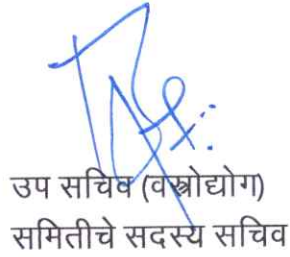 उप सचिव (वस्त्रोद्योग)
समितीचे सदस्य सचिव